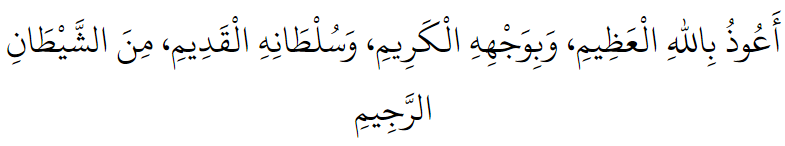 أَعُوذُ بِاللهِ الْعَظِيمِ، وَبِوَجْهِهِ الْكَرِيمِ، وَسُلْطَانِهِ الْقَدِيمِ، مِنَ الشَّيْطَانِ
الرَّجِيمِ